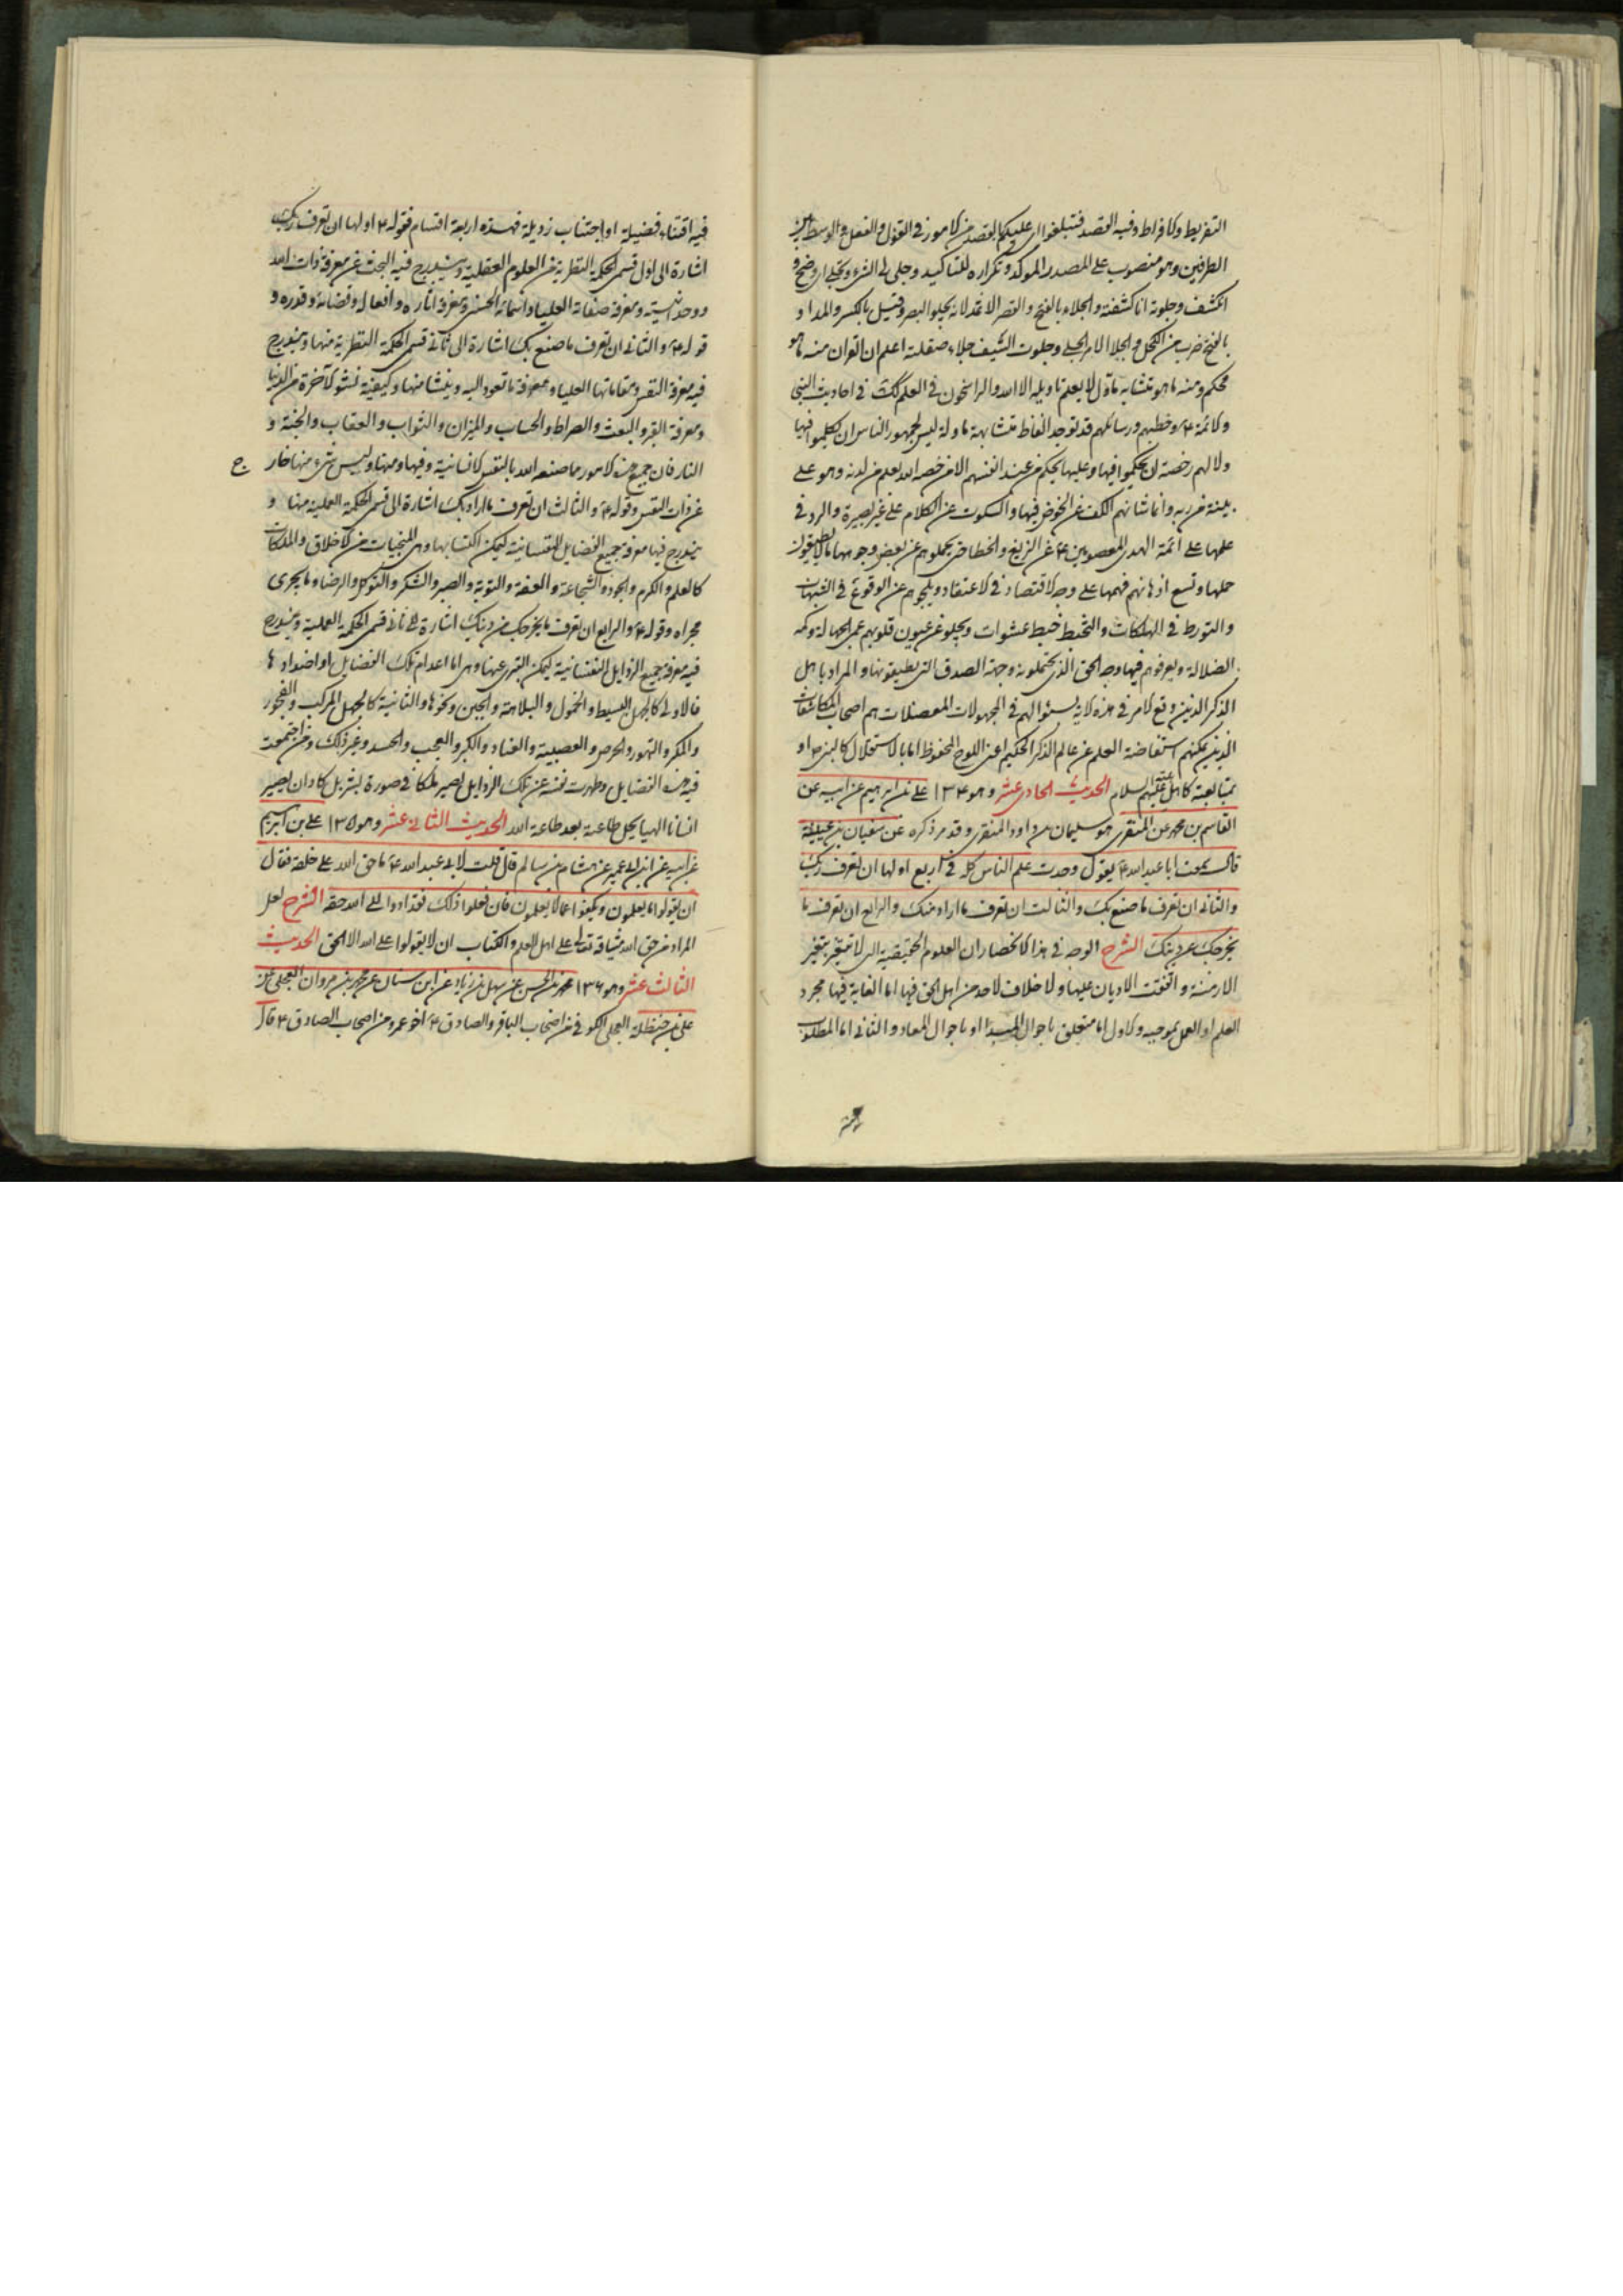 التفريط والافراط وفيه القصد فتبلغوا اى عليكم القصد من الامور فى القول والفعل والوسط بين
الطرفين وهو منصوب على المصدر الموكد وتكراره للتاكيد وجلى لى الشىء وتجلى اى وضح و
انكشف وجلوته انا كشفته والجلاء بالفتح والقصر الاثمد لانه يجلو البصر وقيل بالكسر والمد او
بالفتح ضرب من الكحل والجلا الامر الجلى وجلوت السيف جلاء صقلته اعلم ان القران منه ما هو
محكم ومنه ما هو متشابه ماول لا يعلم تاويله الا الله والراسخون فى العلم كك فى احاديث النبى
والائمة ع وخطبهم ورسائلهم قد توجد الفاظ متشابهة ماولة ليس لجمهور الناس ان يتكلموا فيها
ولا لهم رخصة ان يحكموا فيها وعليها بحكم من عند انفسهم الا من خصه الله بعلم من لدنه وهو على
بينة من ربه وانما شانهم الكف عن الخوض فيها والسكوت عن الكلام على غير بصيرة والرد فى
علمها على ائمة الهدى المعصومين ع عن الزيغ والخطا حتى يحملوهم عن بعض وجوهها ما يطيقون
حملها وتسع اذهانهم فهمها على وجه الاقتصاد فى الاعتقاد وينجوهم عن الوقوع فى الشبهات
والتورط فى المهلكات والتخبط خبط عشوات ويجلو عن عيون قلوبهم عمى الجهالة وكمه
الضلالة ويعرفوهم فيها وجه الحق الذى يحتملونه وجهة الصدق التى يطيقونها والمراد باهل
الذكر الذين وقع الامر فى هذه الاية بسئوالهم فى المجهولات المعضلات هم اصحاب المكاشفات
الذين يمكنهم استفاضة العلم عن عالم الذكر الحكيم اعنى اللوح المحفوظ اما بالاستقلال كالنبى ص او
بمتابعته كاهل بيته عليهم السلام الحديث الحادى عشر وهو ١٣٤ على بن ابرهيم عن ابيه عن
القاسم بن محمد عن المنقرى هو سليمان بن داود المنقرى وقد مر ذكره عن سفيان بن عيينة
قال سمعت ابا عبد الله ع يقول وجدت علم الناس كله فى اربع اولها ان تعرف ربك
والثانى ان تعرف ما صنع بك والثالث ان تعرف ما اراد منك والرابع ان تعرف ما
يخرجك عن دينك الشرح الوجه فى هذا الانحصار ان العلوم الحقيقية التى لا تتغير بتغير
الازمنة واتفقت الاديان عليها ولا خلاف لاحد من اهل الحق فيها اما الغاية فيها مجرد
العلم او العمل بموجبه والاول اما متعلق باحوال المبدا او باحوال المعاد والثانى اما المطلوب
فيه اقتناء فضيلة او اجتناب رذيلة فهذه اربعة اقسام فقوله ع اولها ان تعرف ربك
اشارة الى اول قسمى الحكمة النظرية من العلوم العقلية ويندرج فيه البحث عن معرفة ذات الله
ووحدانيته ومعرفة صفاته العليا واسمائه الحسنى ومعرفة اثاره وافعاله وقضائه وقدره و
قوله ع والثانى ان تعرف ما صنع بك اشارة الى ثانى قسمى الحكمة النظرية منها ويندرج
فيه معرفة النفس ومقاماتها العليا ومعرفة ما تعود اليه وينشا منها وكيفية نشو الآخرة من الدنيا
ومعرفة القبر والبعث والصراط والحساب والميزان والثواب والعقاب والجنة و
النار فان جميع هذه الامور مما صنعه الله بالنفس الانسانية وفيها ومنها وليس شىء منها خار
ج
عن ذات النفس وقوله ع والثالث ان تعرف ما اراد بك اشارة الى قسم الحكمة العملية منها و
يندرج فيها معرفة جميع الفضايل النفسانية ليمكن اكتسابها وهى المنجيات من الاخلاق والملكات
كالعلم والكرم والجود والشجاعة والعفة والتوبة والصبر والشكر والتوكل والرضا وما يجرى
مجراه وقوله ع والرابع ان تعرف ما يخرجك من دينك اشارة الى ثانى قسمى الحكمة العملية ويندرج
فيه معرفة جميع الرذايل النفسانية ليمكن التبرى عنها وهى اما اعدام تلك الفضايل او اضدادها
فالاولى كالجهل البسيط والخمول والبلاهة والجبن ونحوها والثانية كالجهل المركب والفجور
والمكر والتهور والحرص والعصبية والعناد والكبر والعجب والحسد وغير ذلك ومن اجتمعت
فيه هذه الفضايل وطهرت نفسه عن تلك الرذايل يصير ملكا فى صورة بشر بل كاد ان يصير
انسانا الهيا يحل طاعته بعد طاعة الله الحديث الثانى عشر وهو ١٣٥ على بن ابرهيم
عن ابيه عن ابن ابى عمير عن هشام بن سالم قال قلت لابى عبد الله ع ما حق الله على خلقه فقال
ان يقولوا ما يعلمون ويكفوا عما لا يعلمون فان فعلوا ذلك فقد ادوا الى الله حقه الشرح لعل
المراد من حق الله ميثاقه تعالى على اهل العلم والكتاب ان لا يقولوا على الله الا الحق الحديث
الثالث عشر وهو ١٣٦ محمد بن الحسن عن سهل بن زياد عن ابن سنان عن محمد بن مروان العجلى عن
على بن حنظلة العجلى الكوفى من اصحاب الباقر والصادق ع اخو عمر ومن اصحاب الصادق ع قال